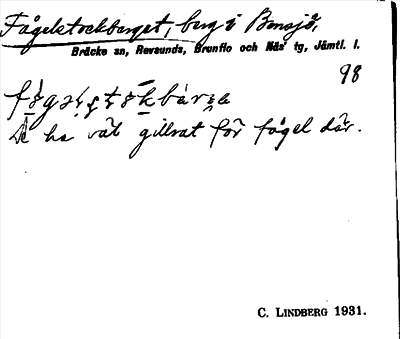 Fågelstockberget, berg i Bensjö,
Bräcke sn, Revsunds, Brunflo och Näs' tg, Jämtl. l.
98
De ha vät gillrat för fågel där.
C. LINDBERG 1931.